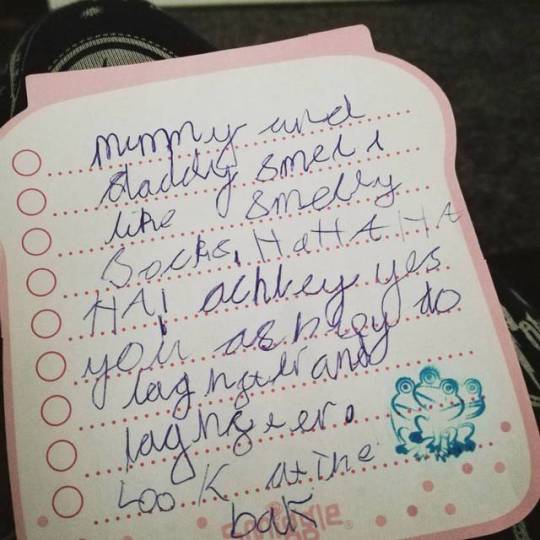 mummy and
daddy smell
like smelly
Socks, HaHAHA
HA! achley yes
you as
laghter and
laghter.
Look at the
bak